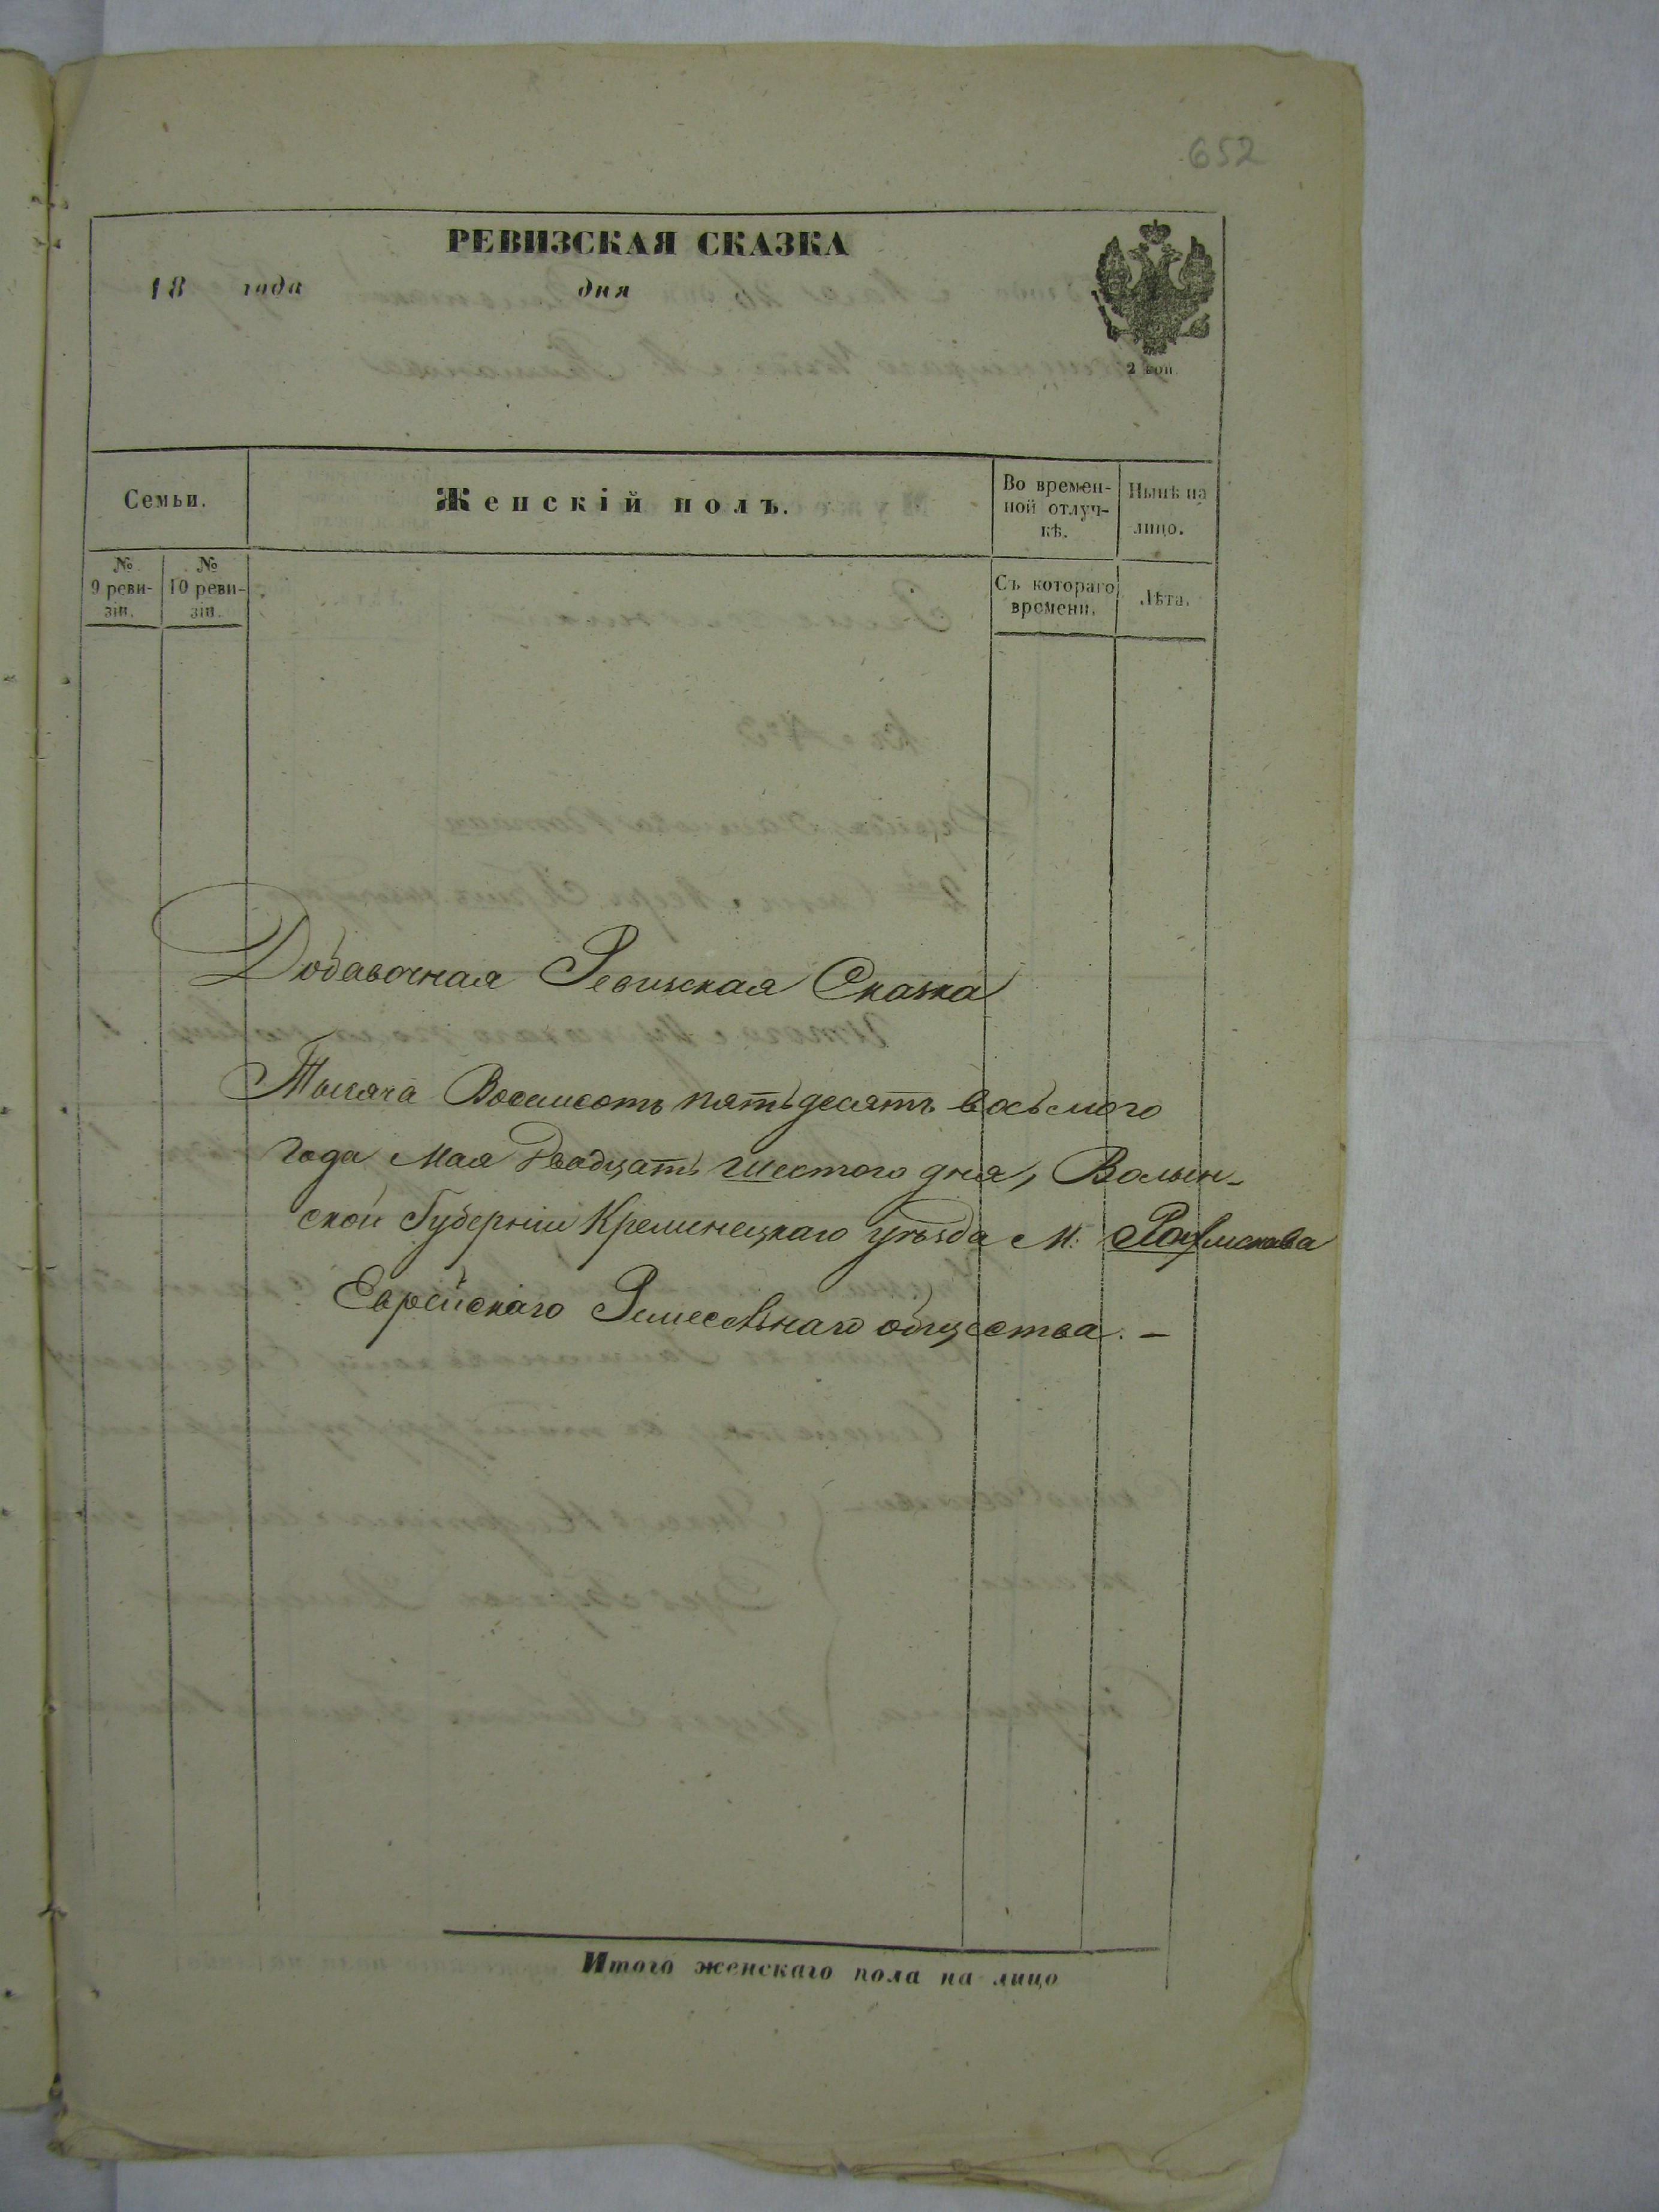 652
РЕВИЗСКАЯ СКАЗКА
18 года дня
2 коп.
Семьи.
Женскій полъ.
Во времен-
ной отлуч-
кѣ.
Нынѣ на
лицо.
№
9 реви-
зіи.
№
10 реви-
зіи.
Съ котораго
времени.
Лѣта.
Добавочная Ревизская Сказка
Тысяча Восемсотъ пятьдесятъ восьмого
года Мая двадцать шестого дня, Волын-
ской Губерніи Кременецкаго уѣзда М:
Еврейскаго Ремесленаго общества. –
Итого женскаго пола на лицо